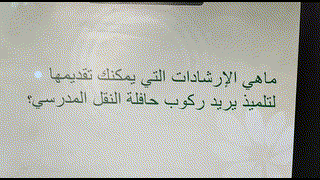 ماهي الإرشادات التي يمكنك تقديمها
لتلميذ يريد ركوب حافلة النقل المدرسي؟